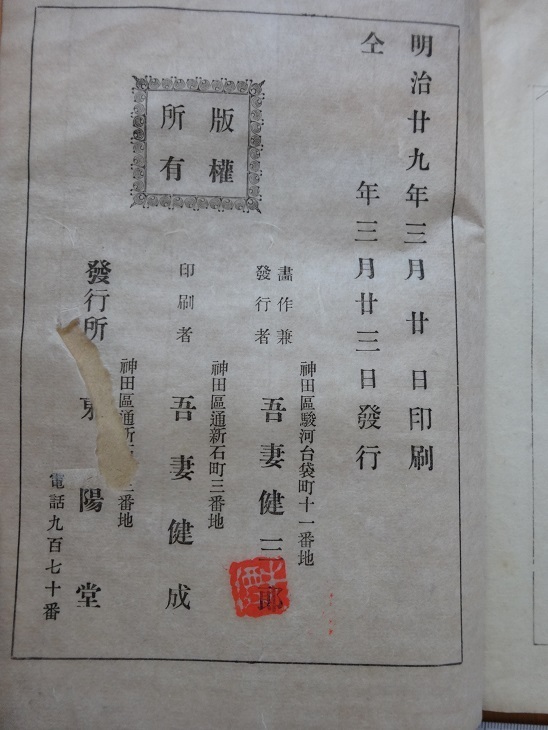 明治廿九年三月廿日印刷
仝年三月廿三日發行
版權
所有
神田區駿河台袋町十一番地
畫作兼
發行者
吾妻健三郎
神田區通新石町三番地
印刷者
吾妻健成
神田區通新 三番地
發行所
東陽堂
電話九百七十番